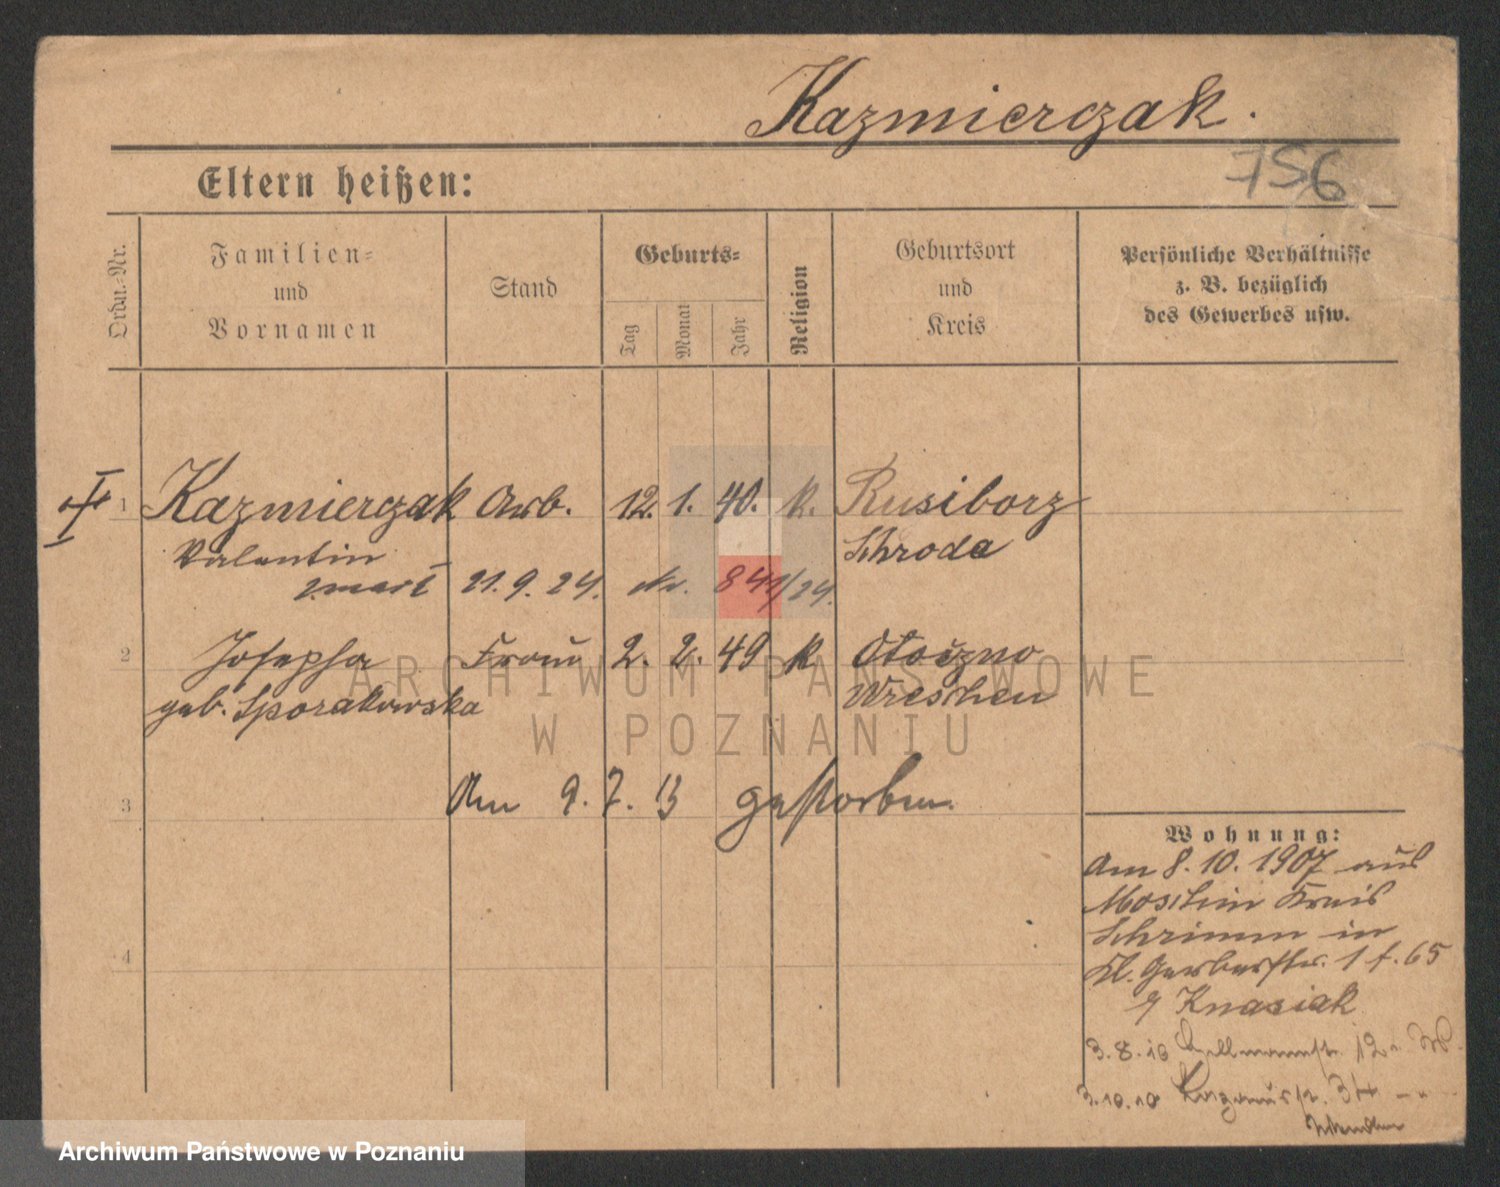 Kazmierczak.
756
Eltern heißen:
Ordn.-Nr.
Familien-
und
Vornamen
Stand
Geburts-
Tag
Monat
Jahr
Religion
Geburtsort
und
Kreis
Persönliche Verhältnisse
z. B. bezüglich
des Gewerbes usw.
1 Kazmierczak Arb. 12. 1. 40. k. Rusiborz
Valentin Schroda
zmarł 21. 9. 24. Nr. 841/24.
2 Josepha Frau 2. 2. 49 k Otoczno
geb. Sporakowska Wreschen
3 Am 9. 7. 13 gestorben.
4
Wohnung:
Am 8. 10. 1907 aus
Moschin Kreis
Schrimm in
Kl. Gerberstr. 1 f. 65
Knasiak
3. 8. 10 12
3. 10. 10 34
ARCHIWUM PAŃSTWOWE
W POZNANIU
Archiwum Państwowe w Poznaniu